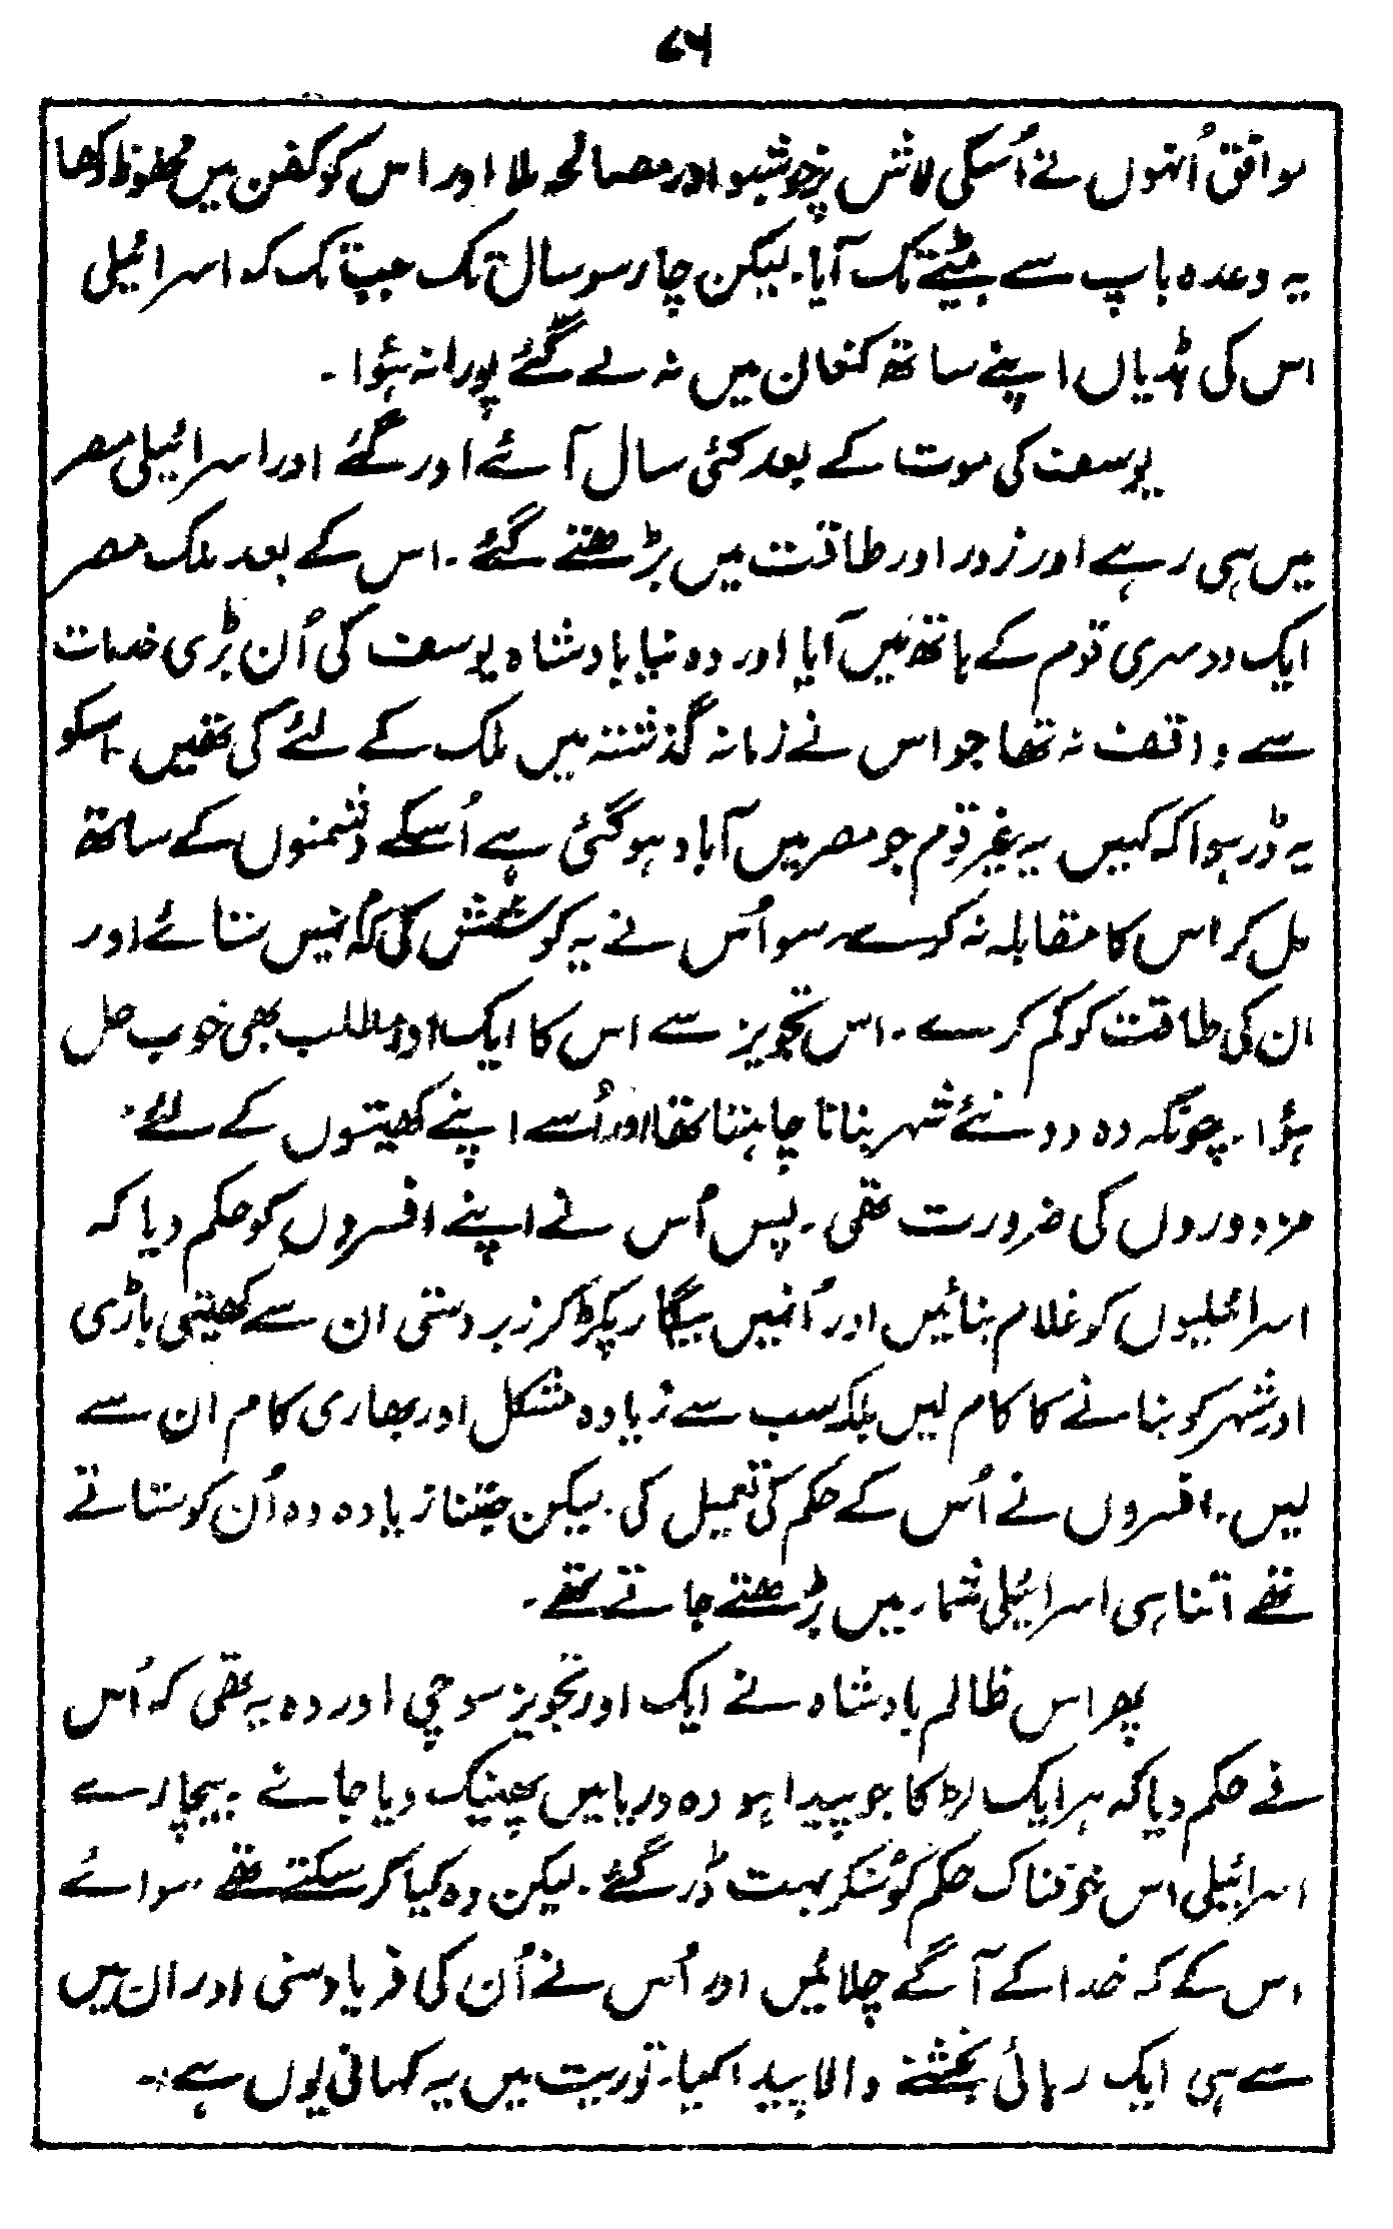 ۷۶
موافق اُنہوں نے اُسکی لاش پرخوشبو اور مصالحہ ملا اور اس کو کفن میں محفوظ رکھا
یہ وعدہ باپ سے بیٹے تک آیا۔ لیکن چار سو سال تک جب تک کہ اسرائیلی
اس کی ہڈیاں اپنے ساتھ کنعان میں نہ لے گئے پورا نہ ہؤا۔
یوسف کی موت کے بعد کئی سال آئے اور گئے اور اسرائیلی مصر
میں ہی رہے اور زور اور طاقت میں بڑھتے گئے۔ اس کے بعد ملک مصر
ایک دوسری قوم کے ہاتھ میں آیا اور وہ نیا بادشاہ یوسف کی اُن بڑی خدمات
سے واقف نہ تھا جو اس نے زمانہ گذشتہ میں ملک کے لئے کی تھیں۔ اسکو
یہ ڈر ہوا کہ کہیں یہ غیر قوم جو مصر میں آباد ہو گئی ہے اُسکے دشمنوں کے ساتھ
مل کر اس کا مقابلہ نہ کرے۔ سو اُس نے یہ کوشش کی کہ اُنہیں ستائے اور
ان کی طاقت کو کم کرے۔ اس تجویز سے اس کا ایک اور مطلب بھی خوب حل
ہؤا۔ چونکہ وہ دو نئے شہر بنانا چاہتا تھا اور اُسے اپنے کھیتوں کے لئے
مزدوروں کی ضرورت تھی۔ پس اُس نے اپنے افسروں کو حکم دیا کہ
اسرائیلیوں کو غلام بنائیں اور اُنہیں بیگار پکڑ کر زبردستی ان سے کھیتی باڑی
اور شہر کو بنانے کا کام لیں بلکہ سب سے زیادہ مشکل اور بھاری کام ان سے
لیں۔ افسروں نے اُس کے حکم کی تعمیل کی۔ لیکن جتنا زیادہ وہ اُن کو ستاتے
تھے اتنا ہی اسرائیلی شمار میں بڑھتے جاتے تھے۔
پھر اس ظالم بادشاہ نے ایک اور تجویز سوچی اور وہ یہ تھی کہ اُس
نے حکم دیا کہ ہر ایک لڑکا جو پیدا ہو وہ دریا میں پھینک دیا جائے۔ بیچارے
اسرائیلی اس خوفناک حکم کو سُنکر بہت ڈر گئے۔ لیکن وہ کیا کر سکتے تھے۔ سوائے
اس کے کہ خدا کے آگے چلائیں اور اُس نے اُن کی فریاد سنی اور ان میں
سے ہی ایک رہائی بخشنے والا پیدا کیا۔ توریت میں یہ کہانی یوں ہے۔